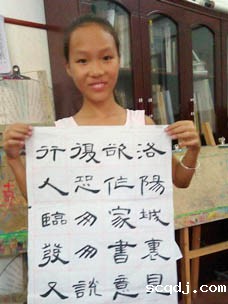 洛陽城裏見
欲作家書意
復恐匆匆說
行人臨發又
scqdj.com